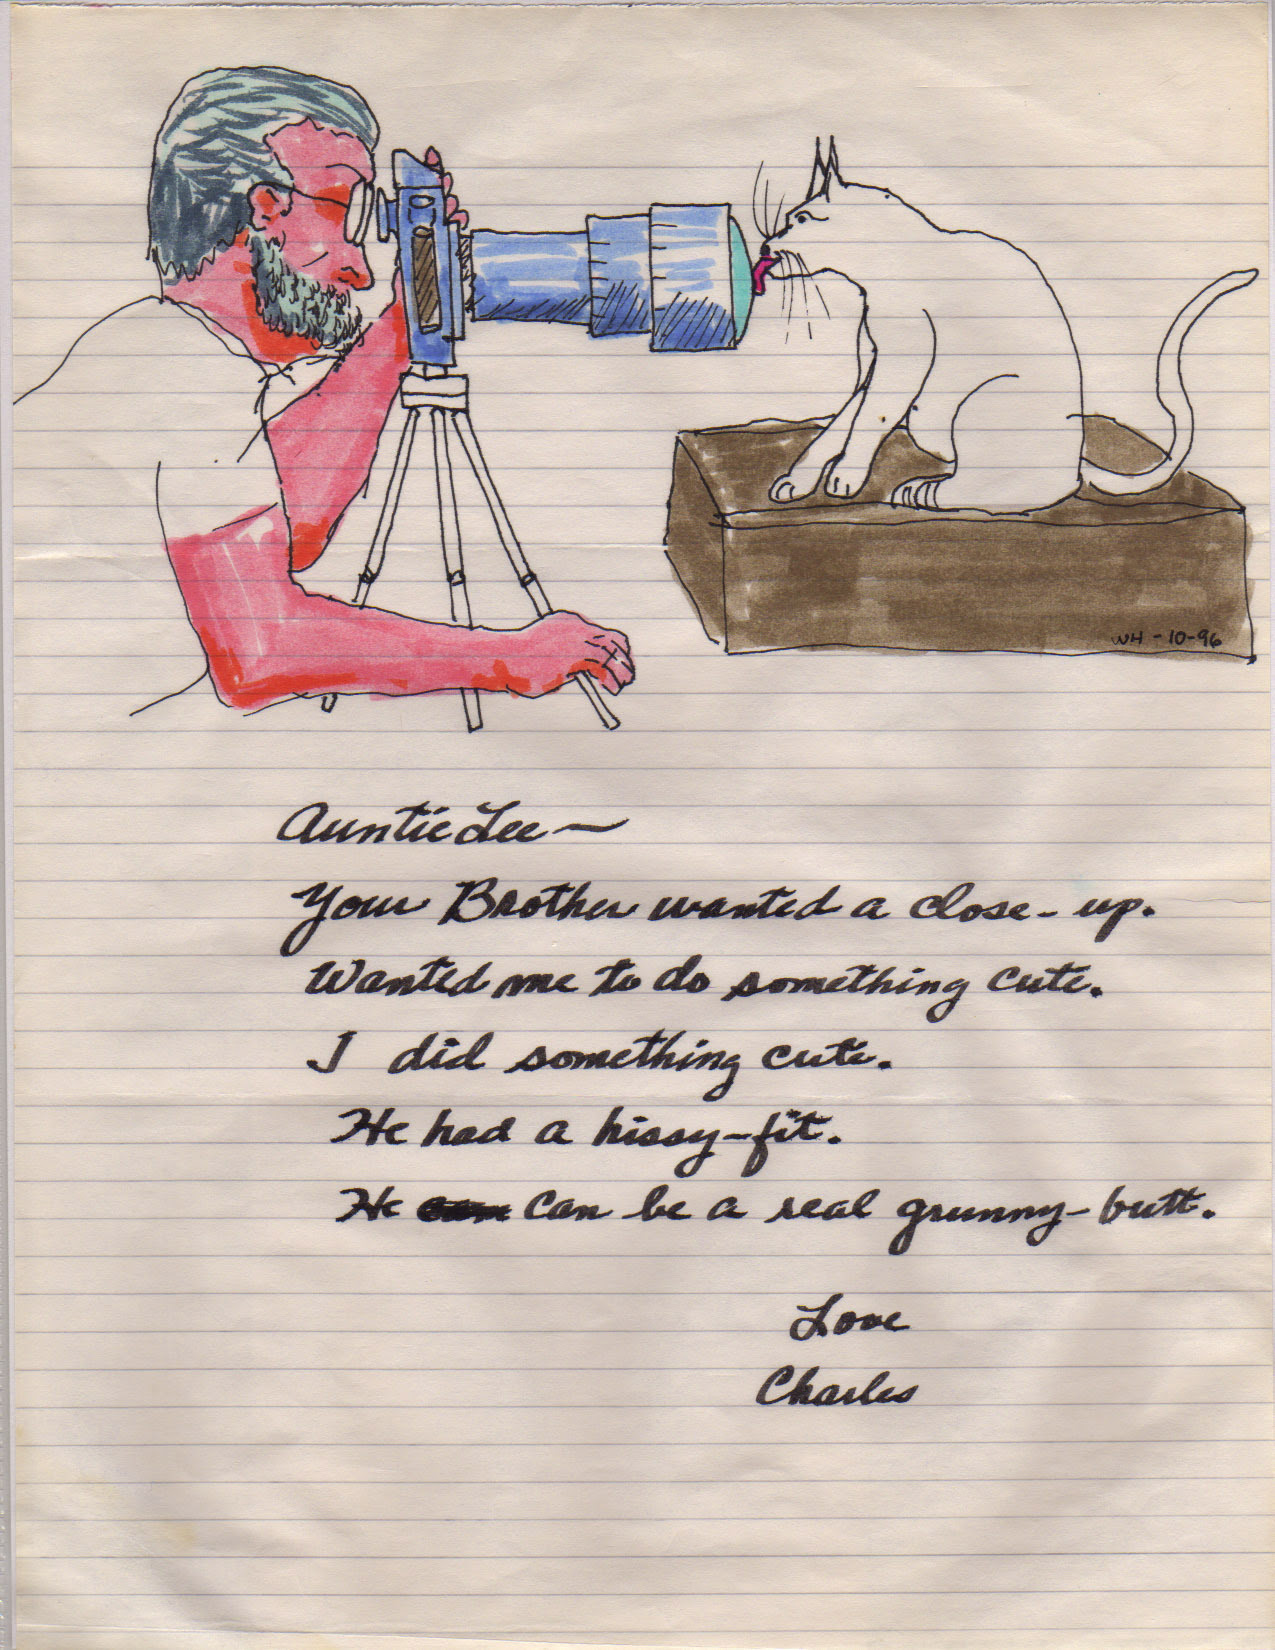 WH - 10-96
Auntie Lee ~
Your Brother wanted a close-up.
Wanted me to do something cute.
I did something cute.
He had a hissy-fit.
He can can be a real grunny-butt.
Love
Charles